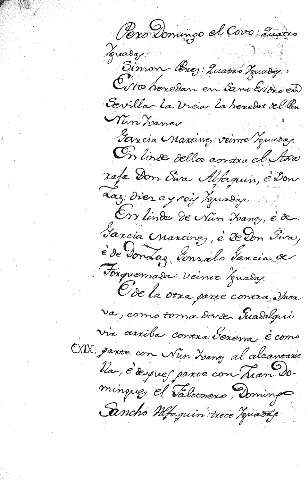 Pero Domingo el Covo: Quatro
Yugadas.
Simon Peres: Quatro Yugadas:
Estos heredan en Sant Esidro en
Sevilla la Vieia la heredat del
Nun Ivanes
Garcia Martinez, veinte Yugadas.
En linde dellos contra el Axa
rafe Don Alfaquin, è Don
Zag, diez, y seis Yugadas.
En linde de Nun Ivanez, è de
Garcia Martinez, è de Don
è de Don Zag, Gonzalo Garcia de
Torquemada veinte Yugadas.
E de la otra parte contra
va, como toma desde Guadalqui
vir arriba contra Gerena, è como
CXIX. parte con Nun Ivanez al alcantari
lla, è despues parte con Juan Do-
minguez el Falconero, Domingo
Sancho Alfaquin: trece Yugadas